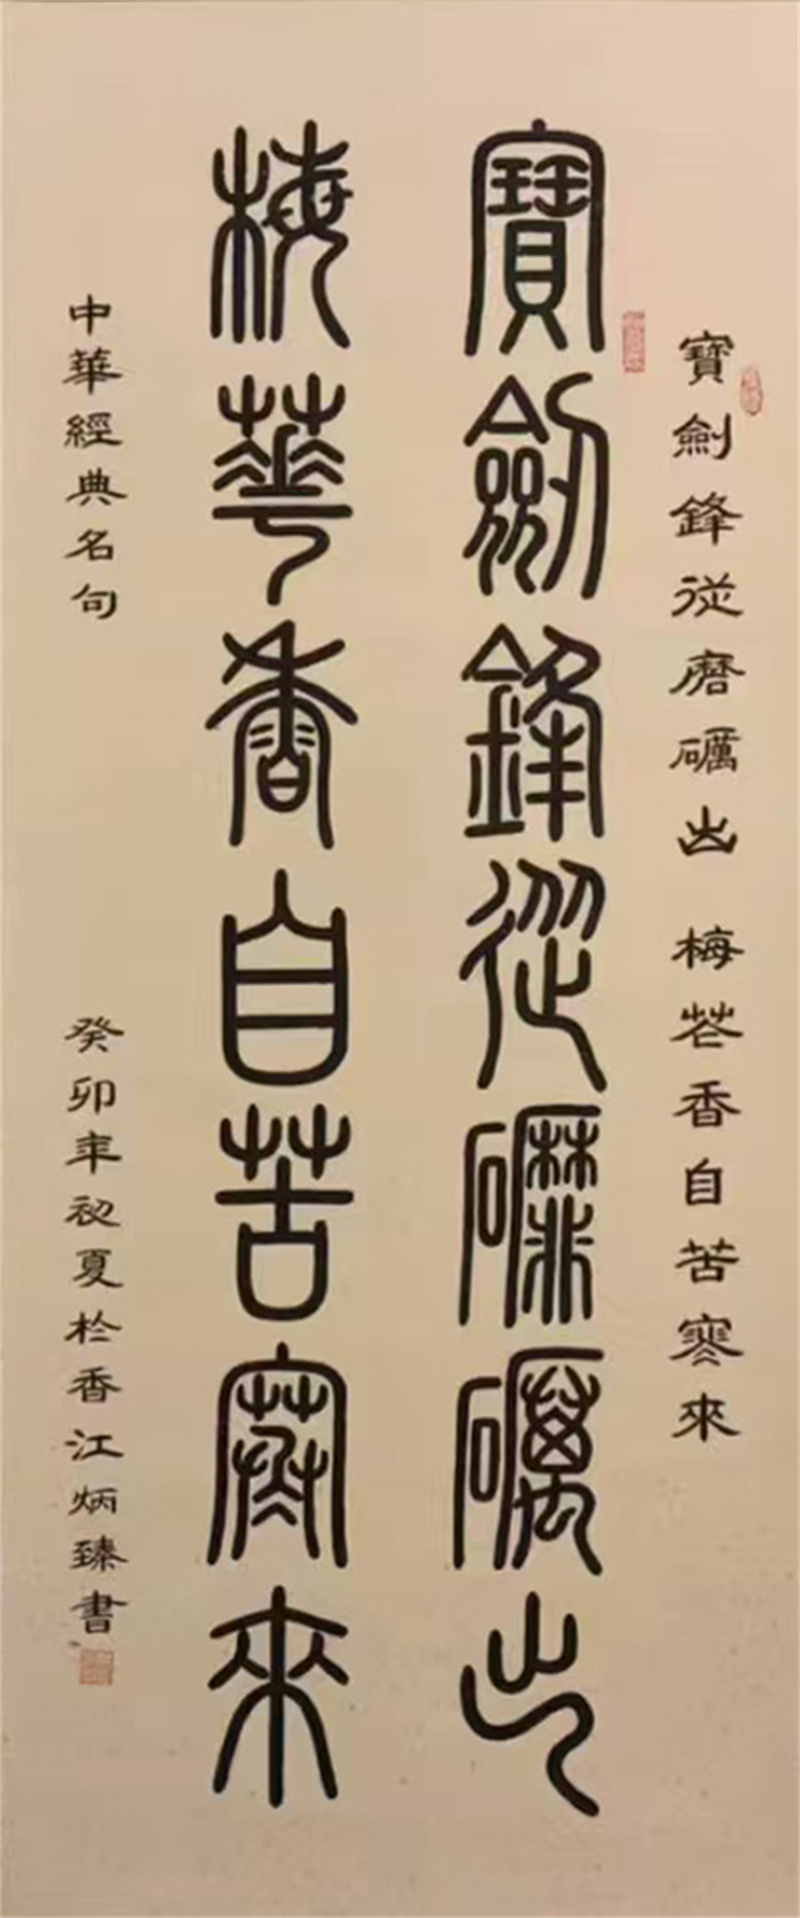 寶劍鋒從磨礪出 梅花香自苦寒來
寶劍鋒從礳礪出
梅華香自苦寒來
中華經典名句
癸卯年初夏於香江炳臻書